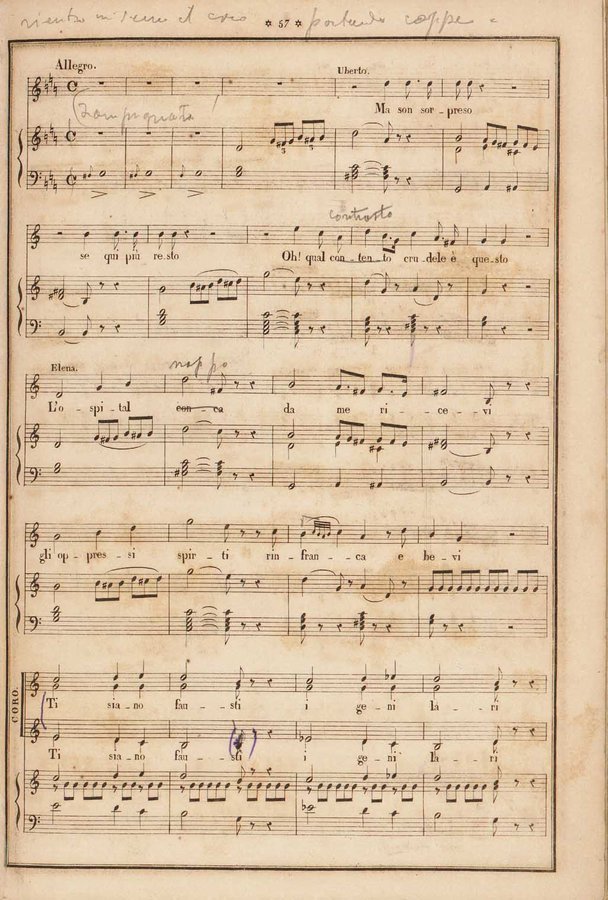 rientra in scena il coro * 57 * portando coppe
Allegro.
Uberto.
Ma son sor_preso
contrasto
se qui più resto Oh! qual con_ten_to cru_dele è que_sto
Elena.
nappo
L'o_spi_tal con_ca da me ri_ce_vi
gli op_pres_si spir_ti rin_fran_ca e be_vi
CORO.
Ti sia_no fau_sti i ge_ni la_ri
Ti sia_no fau_sti i ge_ni la_ri